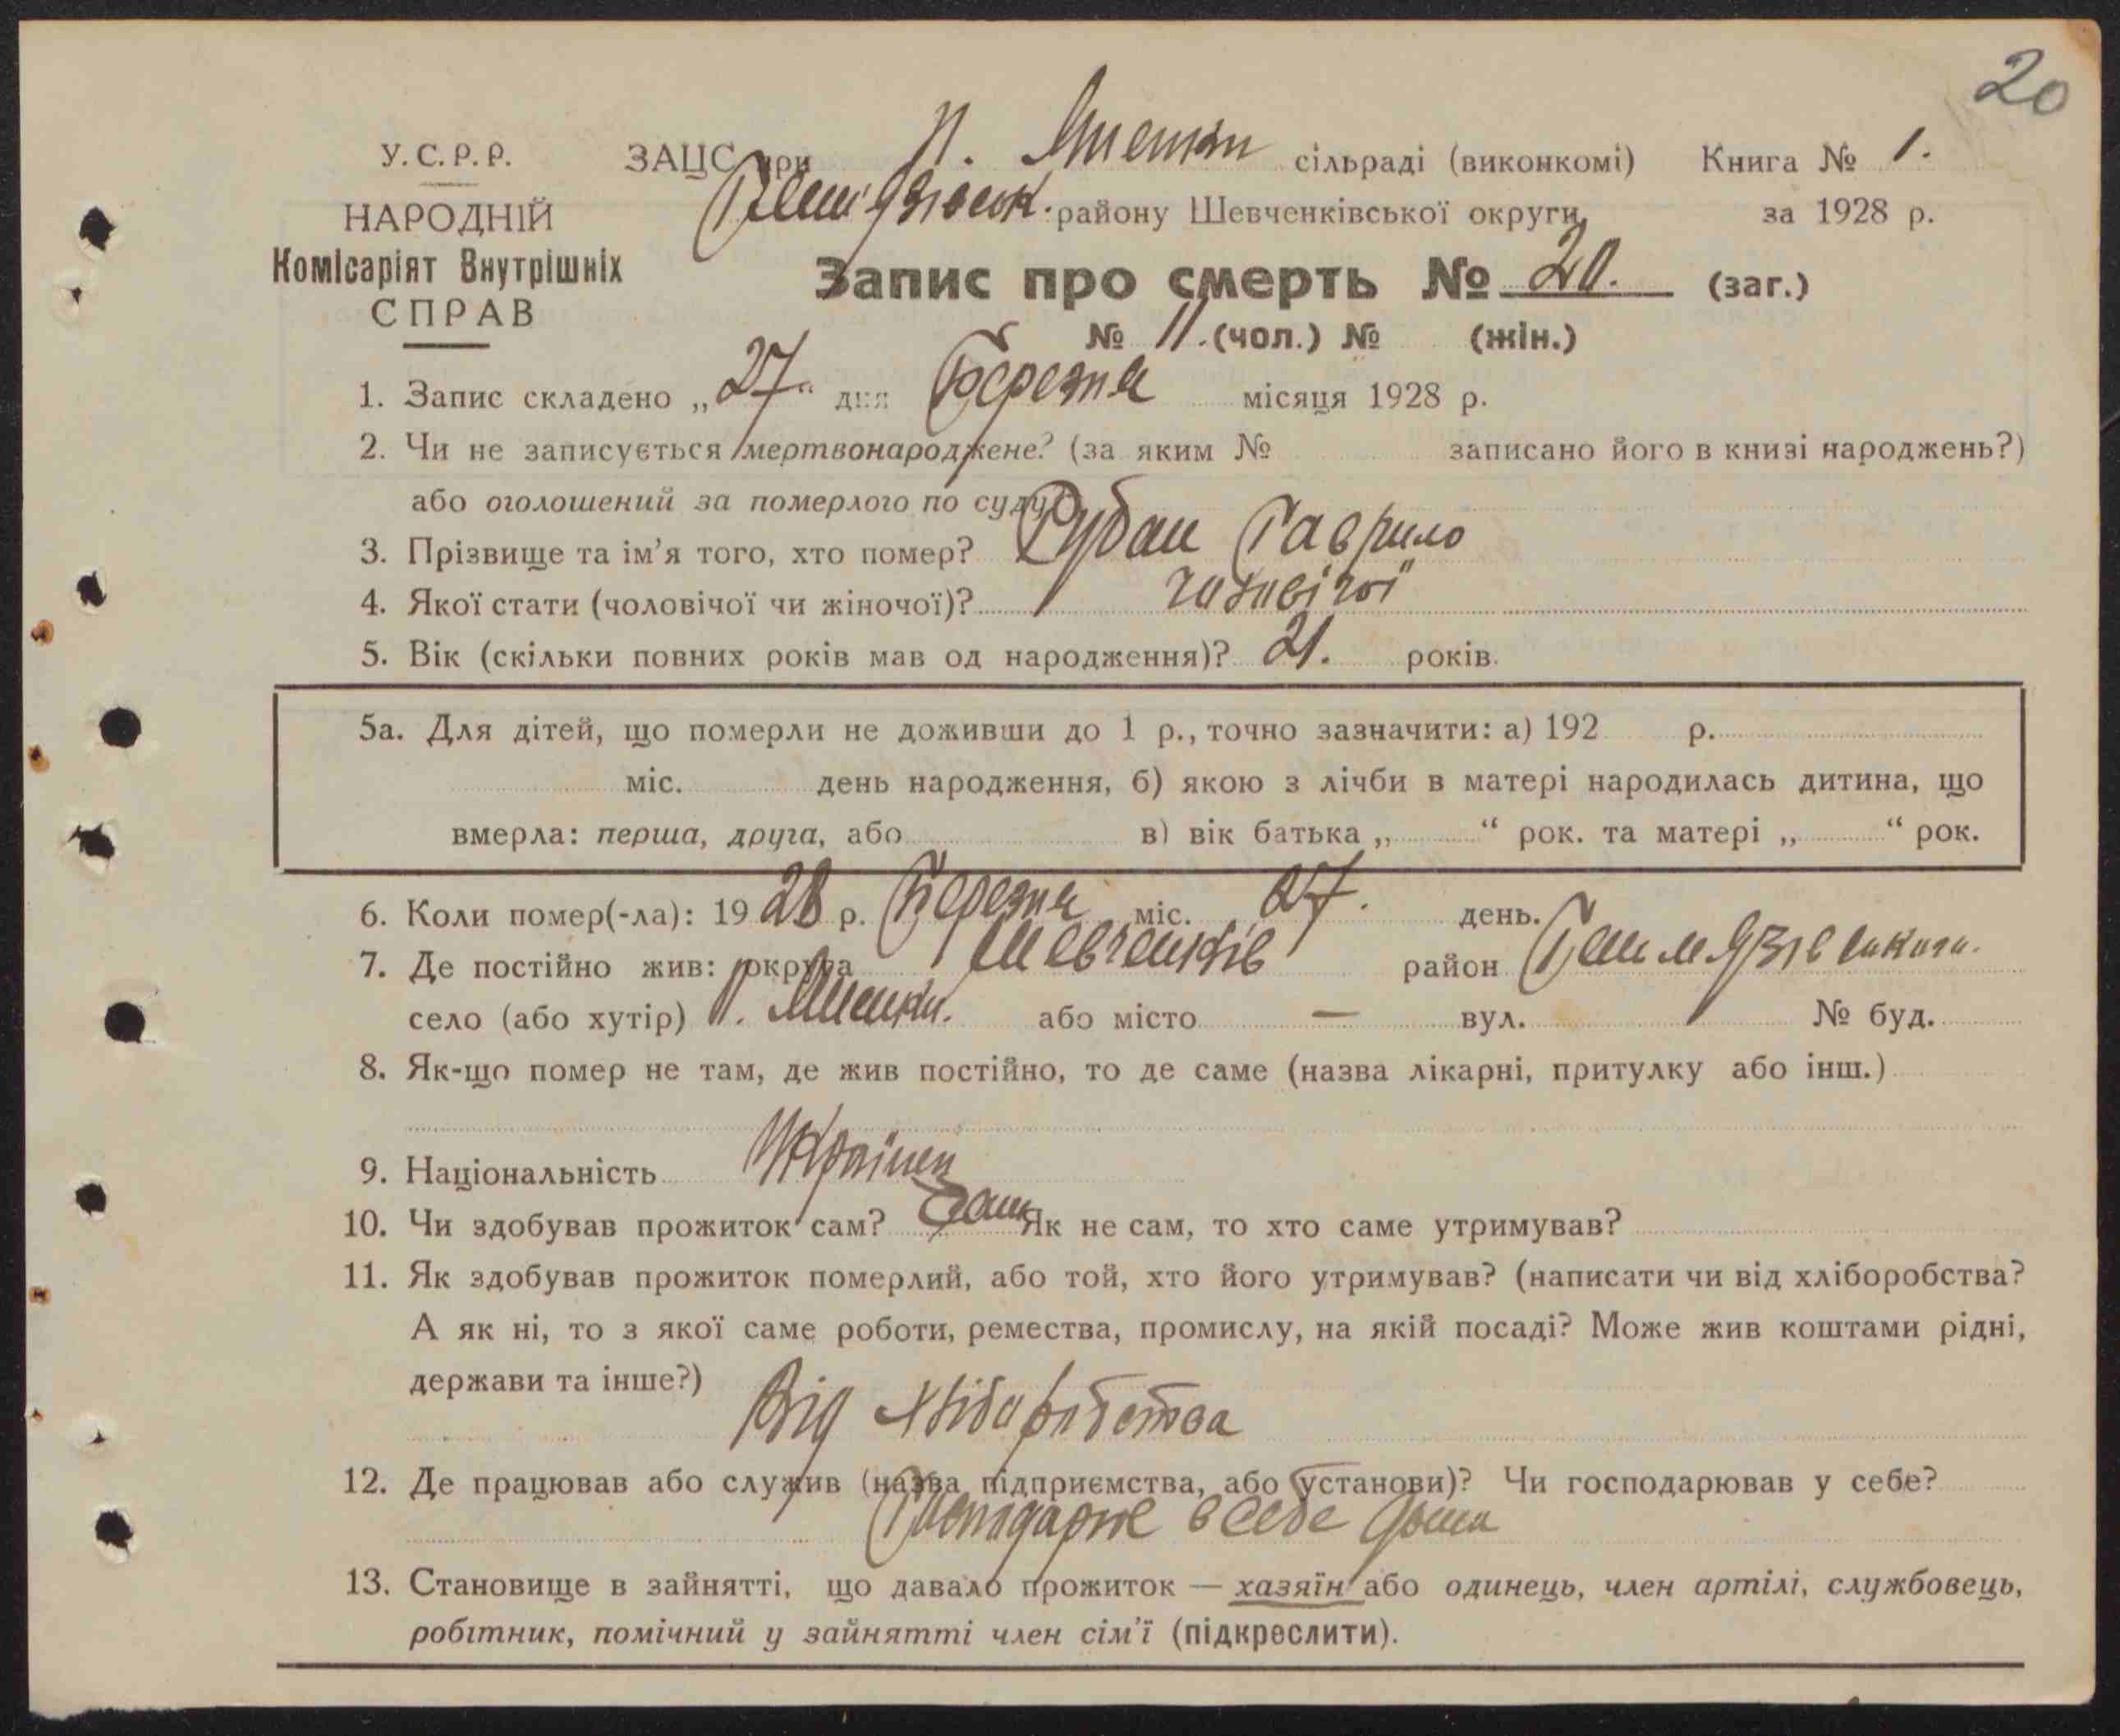 20
У.С.Р.Р. ЗАЦС при П. сільраді (виконкомі) Книга № 1.
НАРОДНІЙ району Шевченківської округи за 1928 р.
Комісаріят Внутрішніх
СПРАВ
Запис про смерть № 20. (заг.)
№ 11. (чол.) № (жін.)
1. Запис складено „27“ дня Березня місяця 1928 р.
2. Чи не записується мертвонароджене? (за яким № записано його в книзі народжень?)
або оголошений за померлого по суду?
3. Прізвище та ім’я того, хто помер? Рубан Гаврило
4. Якої стати (чоловічої чи жіночої)? чоловічої
5. Вік (скільки повних років мав од народження)? 21. років.
5а. Для дітей, що померли не доживши до 1 р., точно зазначити: а) 192 р.
міс. день народження, б) якою з лічби в матері народилась дитина, що
вмерла: перша, друга, або в) вік батька „ “ рок. та матері „ “ рок.
6. Коли помер(-ла): 1928 р. Березня міс. 27. день.
7. Де постійно жив: округа Шевченків район
село (або хутір) П. або місто — вул. № буд.
8. Як-що помер не там, де жив постійно, то де саме (назва лікарні, притулку або інш.)
9. Національність Українец
10. Чи здобував прожиток сам? Сам Як не сам, то хто саме утримував?
11. Як здобував прожиток померлий, або той, хто його утримував? (написати чи від хліборобства?
А як ні, то з якої саме роботи, ремества, промислу, на якій посаді? Може жив коштами рідні,
держави та інше?)
Від хліборобства
12. Де працював або служив (назва підприємства, або установи)? Чи господарював у себе?
в себе дома
13. Становище в зайнятті, що давало прожиток — хазяїн або одинець, член артілі, службовець,
робітник, помічний у зайнятті член сім’ї (підкреслити).